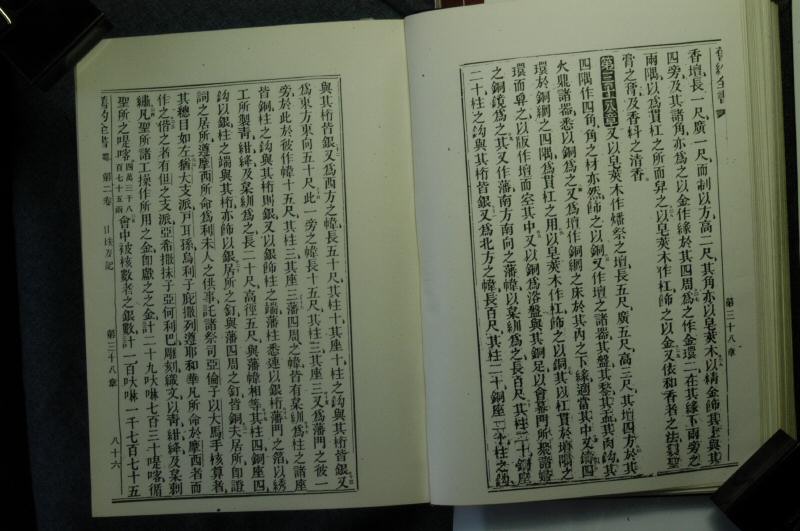 舊約全書
香壇長一尺,廣一尺,而制以方高二尺,其角亦以皂莢木,以精金飾其上與其
四旁及其諸角,亦爲之以金作緣於其四周,爲之作金環二,在其緣下兩旁之
兩隅以爲貫杠之所而舁之,以皂莢木作杠,飾之以金,又依和香者之法,製聖
膏之膏及香料之清香
第三十八章 又以皂莢木作燔祭之壇,長五尺,廣五尺,高三尺,其壇四方,於其
四隅作四角,角之材亦然,飾之以銅,又作壇之諸器,其盤其盂其肉鈎,其
火鼎諸器,悉以銅爲之,又爲壇作銅網之床,於其內之下緣,適當其中,又鑄四
環於銅網之四隅,爲貫杠之用,以皂莢木作杠,飾之以銅,其以杠貫於壇隅之
環而舁之,以版作壇而空其中,又以銅爲浴盤與其銅足,以會幕門所聚諸婦
之銅鏡爲之,其又作藩,南方南向之藩幃,以枲紃爲之,長百尺,其柱二十,銅座
二十,柱之鈎與其桁皆銀,又爲北方之幃,長百尺,其柱二十,銅座二十,柱之鈎
第三十八章
與其桁皆銀,又爲西方之幃,長五十尺,其柱十,其座十,柱之鈎與其桁皆銀,又
爲東方東向五十尺,此一旁之幃長十五尺,其柱三,其座三,又爲藩門之彼一
旁,於此於彼,作幃十五尺,其柱三,其座三,藩四周之幃,皆有枲紃爲之,柱之諸座
皆銅,柱之鈎與其桁則銀,又以銀飾柱之端,藩柱悉連以銀桁,藩門之箔,以綉
工所製靑紺絳及枲紃爲之,長二十尺,高徑五尺,與藩幃相等,其柱四,銅座四,
鈎以銀,柱之端與其桁亦飾以銀,居所之釘與藩四周之釘皆銅,夫居所卽證
詞之居所,遵摩西所命,爲利未人之供事,託諸祭司亞倫子以大馬手核算者,
其總目如左,猶大支派戶耳孫烏利子庇撒列,遵耶和華凡所命於摩西者而
作之,偕之者有但之支派,亞希撒抹子亞何利巴,雕刻織文,以靑紺絳及枲刺
繡,凡聖所諸工操作所用之金,卽獻之之金,計二十九大啉七百三十喥喀,循
聖所之喥喀,會中被核數者之銀數,計一百大啉一千七百七十五
舊約全書 第二卷
第三十八章
八十六